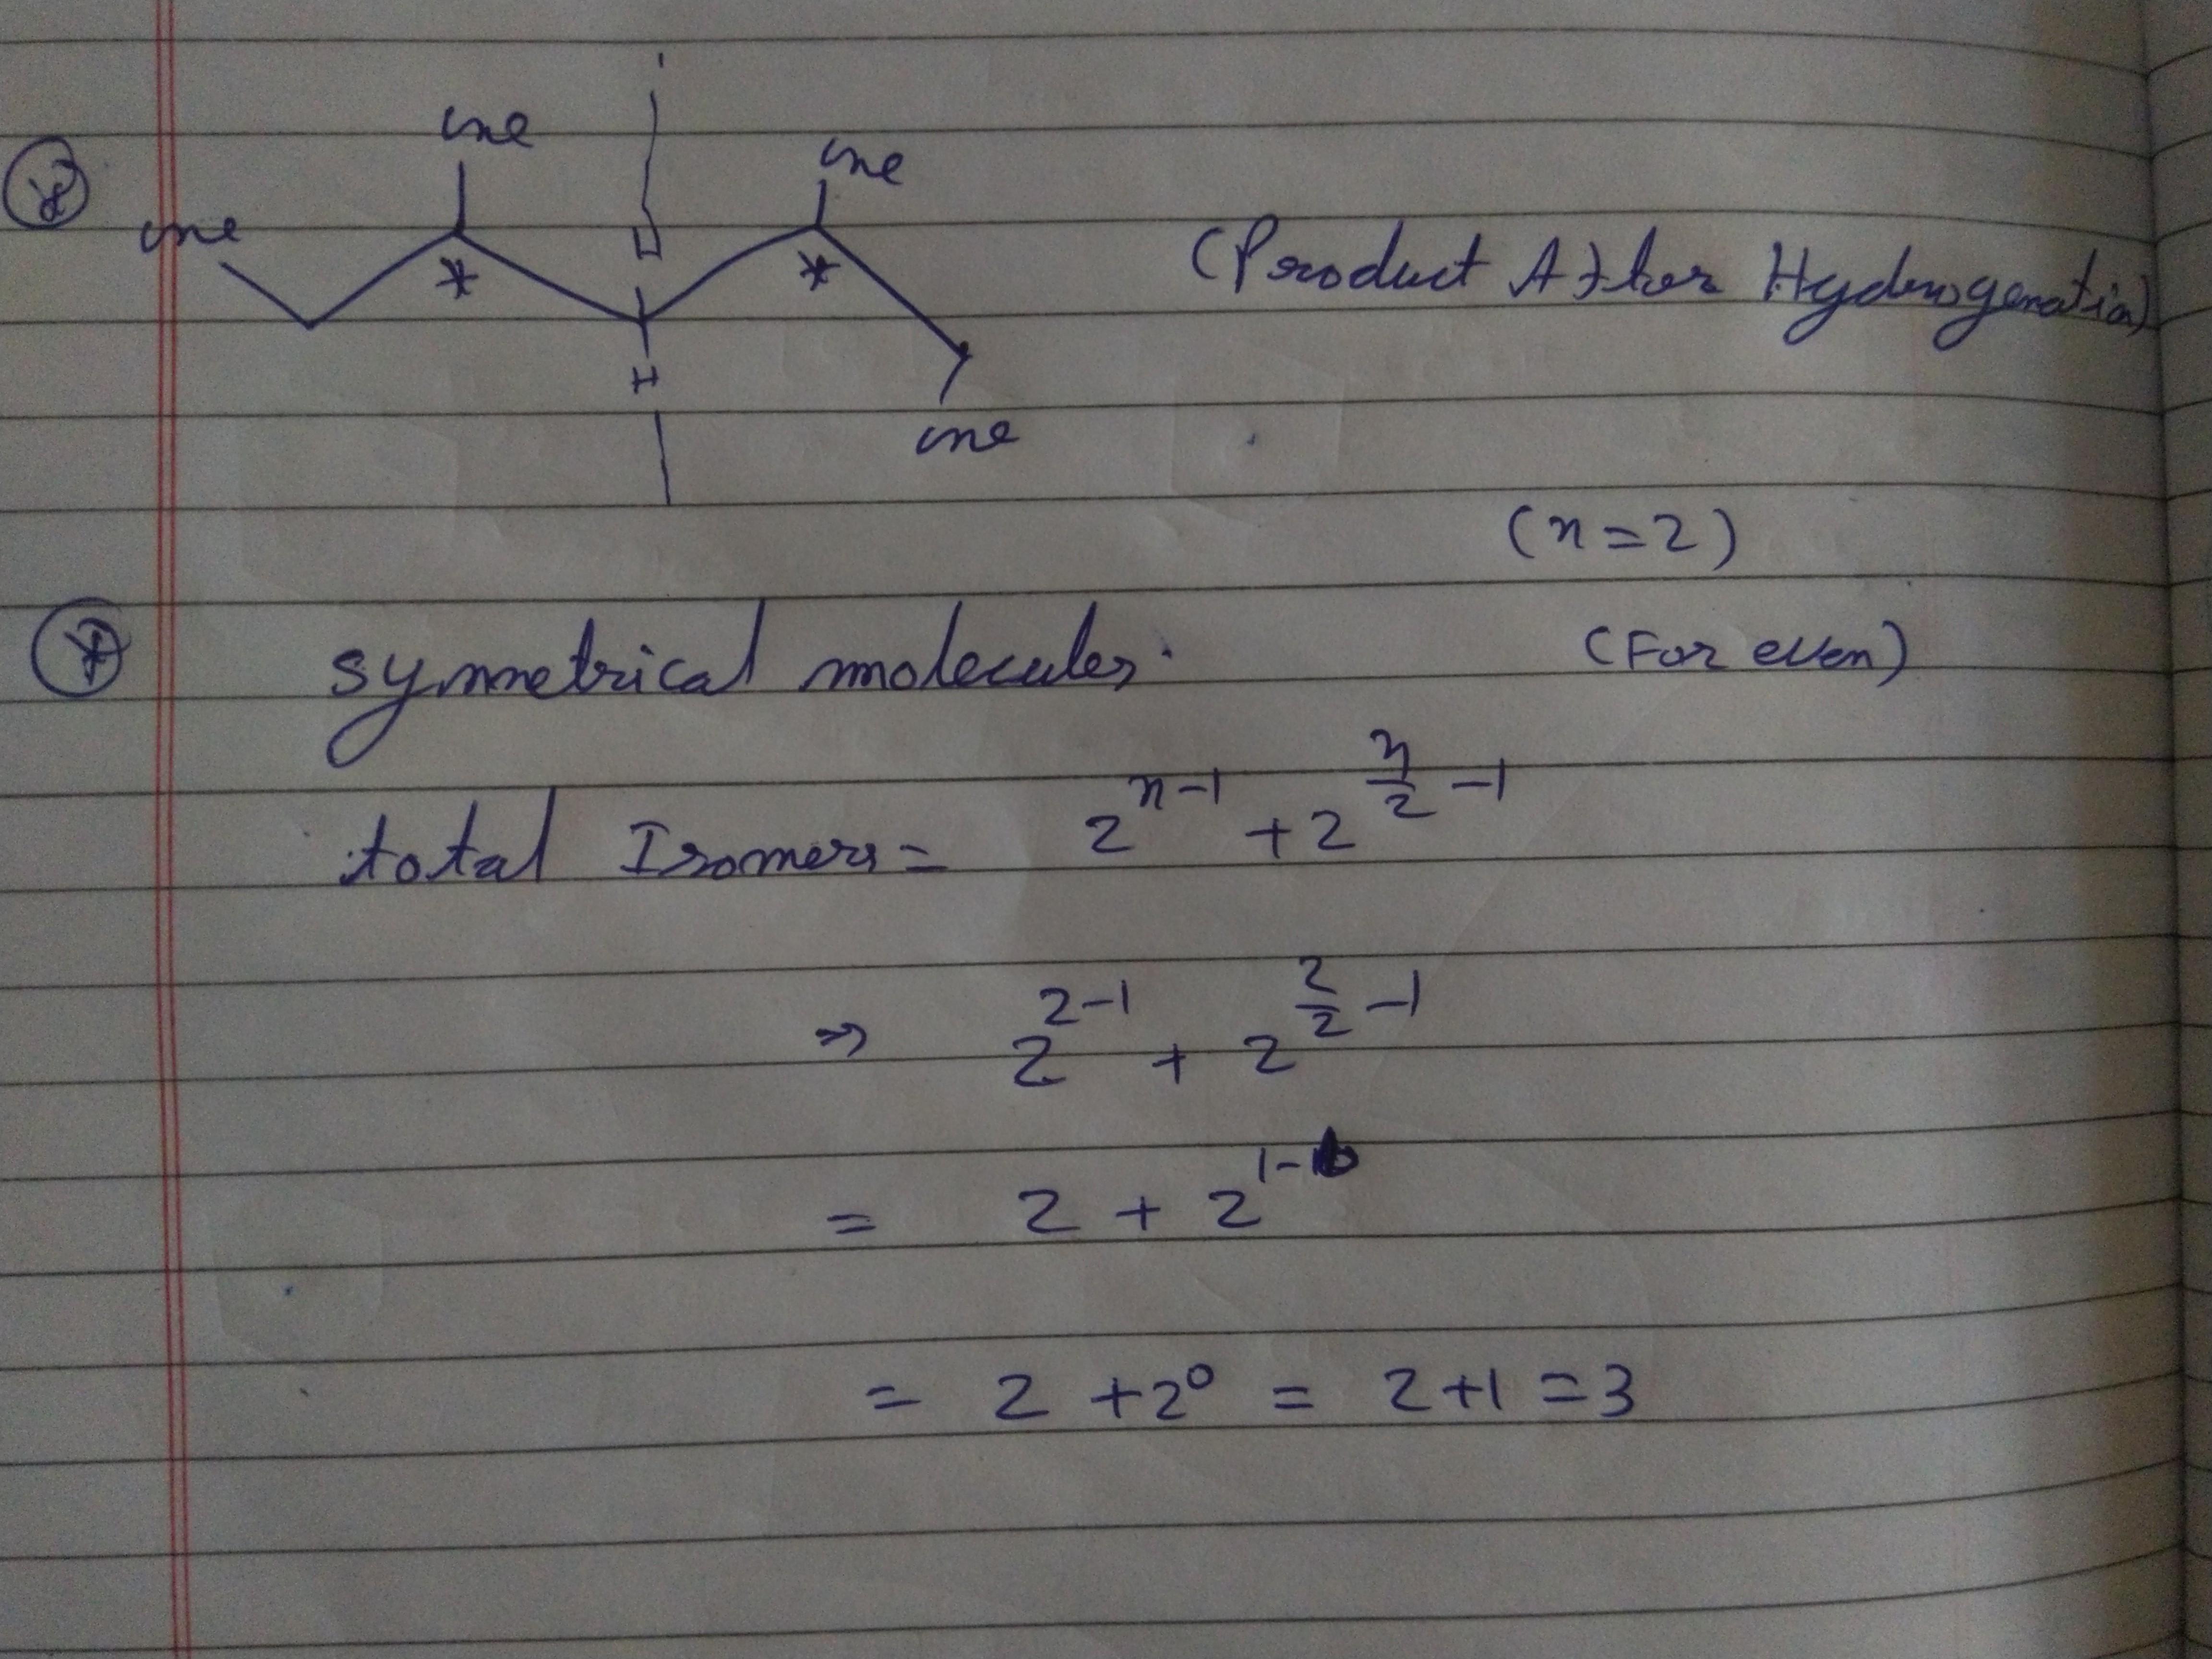 me me
me
* *
H
me
(Product After Hydrogenation)
(n=2)
symmetrical molecules.
(For even)
total Isomers = 2^{n-1} + 2^{n/2 - 1}
⇒ 2^{2-1} + 2^{2/2 - 1}
= 2 + 2^{1-1}
= 2 + 2^0 = 2+1 = 3